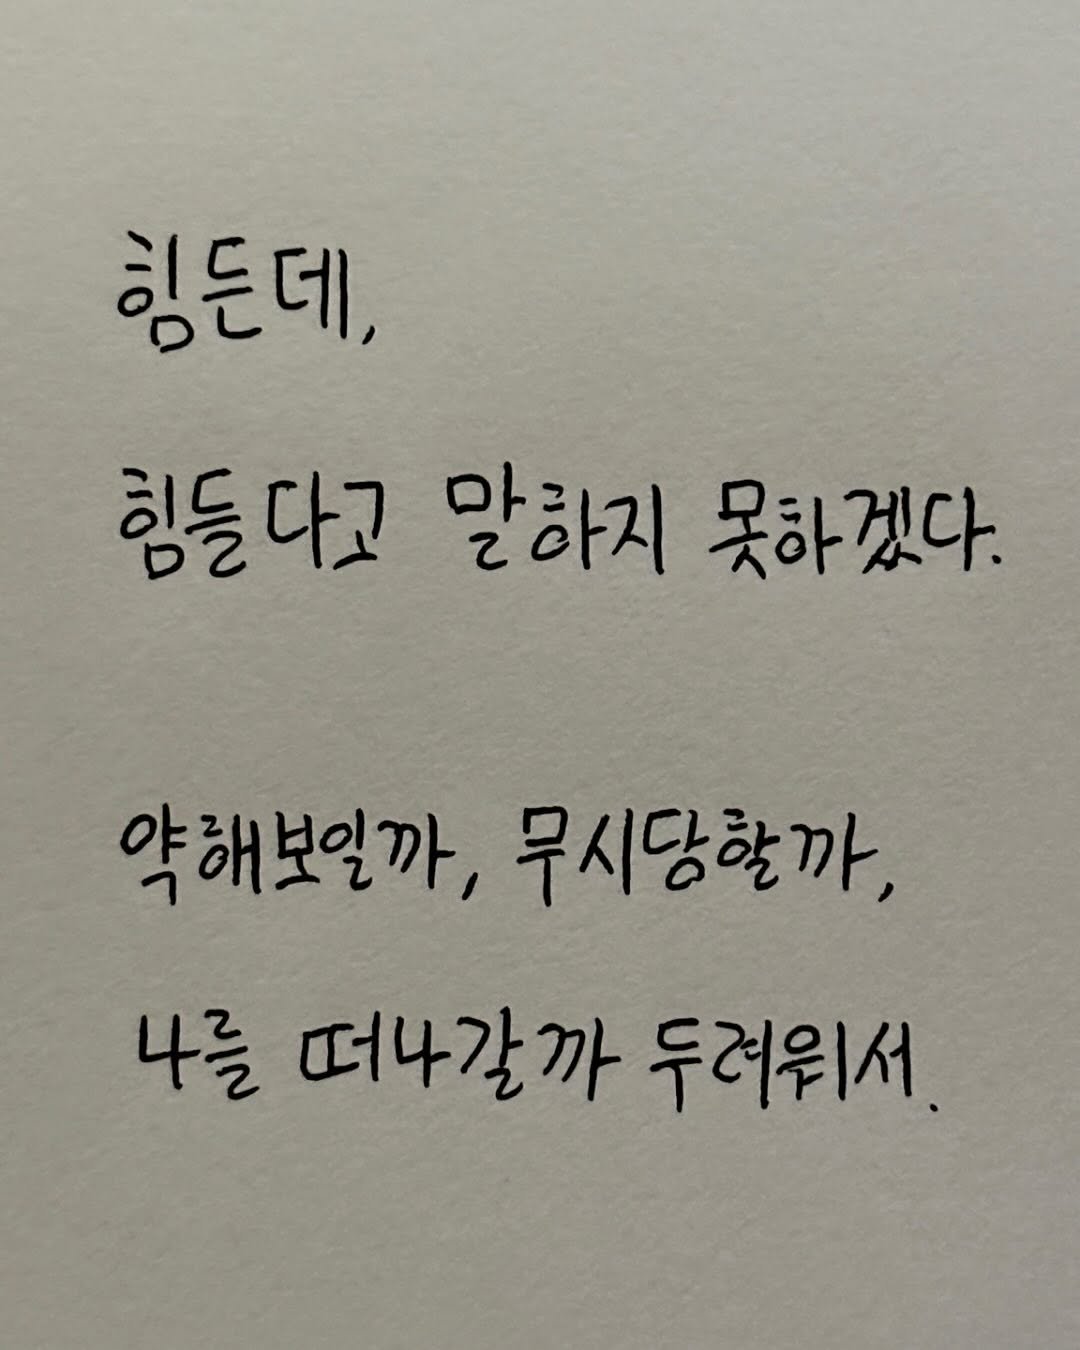 힘든데,
힘들다고 말하지 못하겠다.
약해보일까, 무시당할까,
나를 떠나갈까 두려워서.